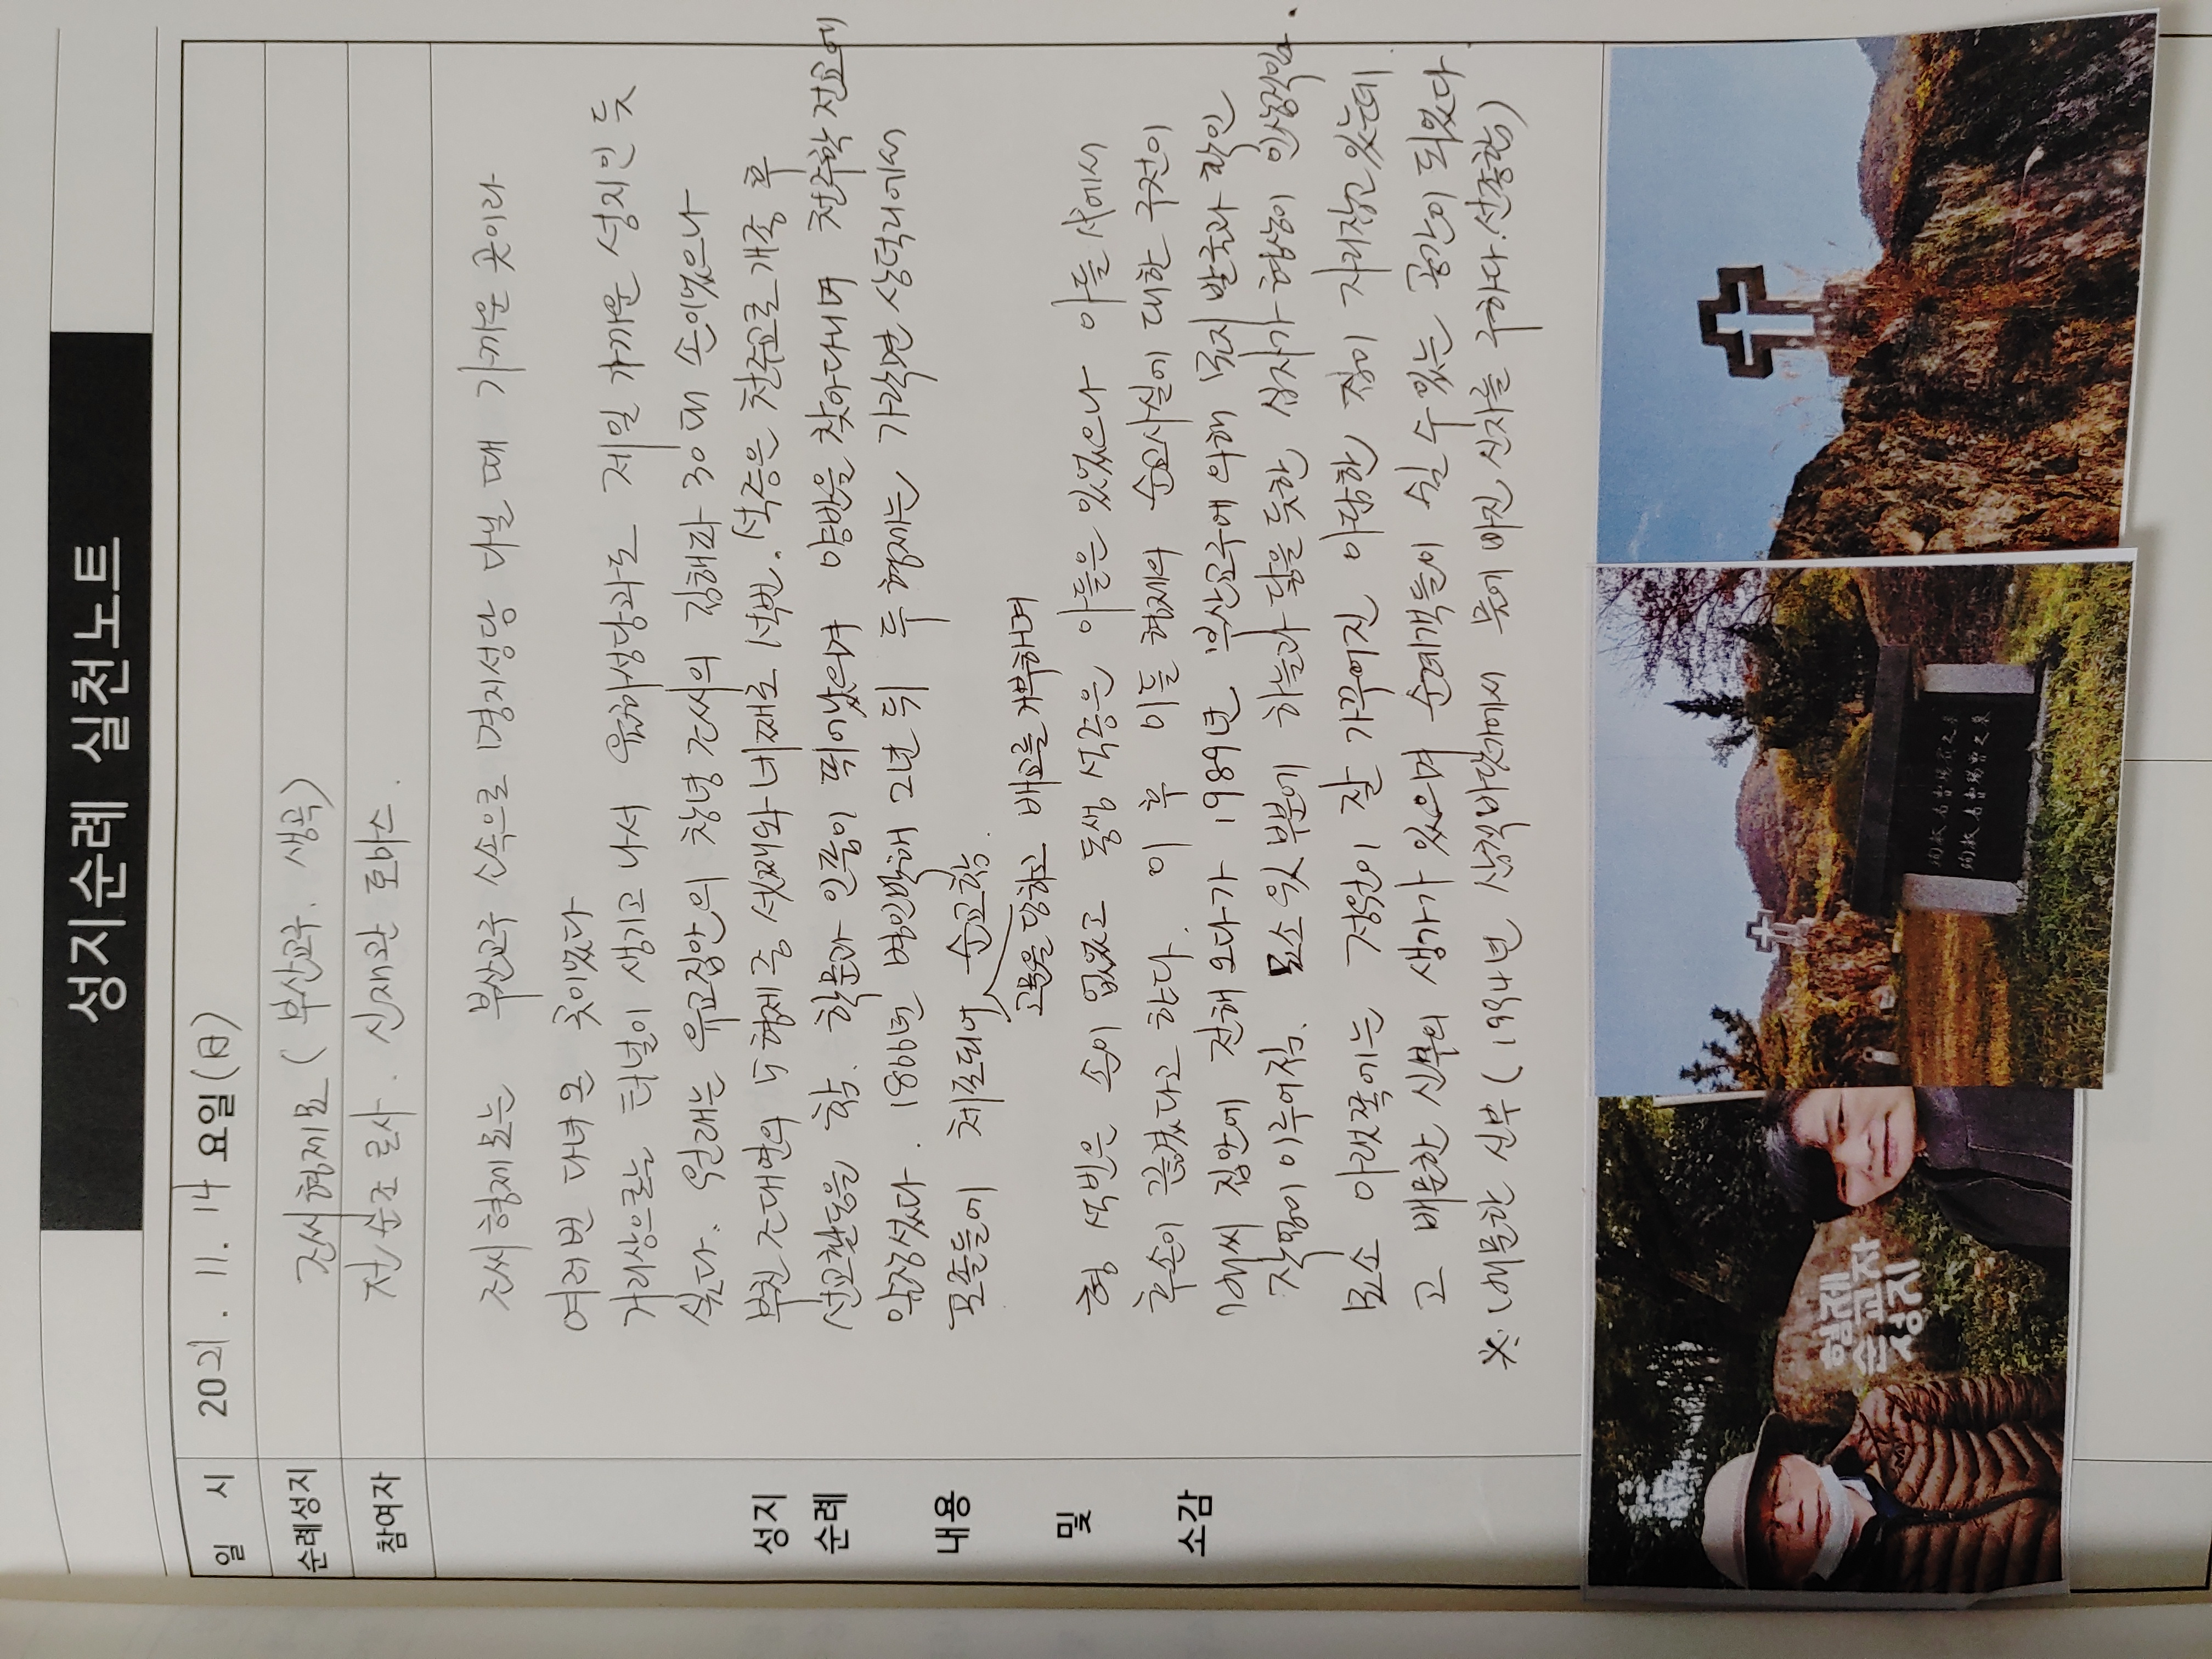 성지순례 실천노트
일 시 2021. 11. 14 요일(日)
순례성지 조씨형제묘 (부산교구. 생곡)
참여자 전순조 로사. 신재관 토마스.
성지 순례 내용 및 소감
조씨형제묘는 부산교구 소속으로 명지성당 다닐 때 가까운 곳이라
여러번 다녀온 곳이었다
거리상으로는 터널이 생기고 나서 율하성당과도 제일 가까운 성지인 듯
싶다. 원래는 유교집안의 창녕 조씨의 김해파 30대 손이었으나
부친 조대연의 5형제 중 셋째와 넷째로 석빈. 석증은 천주교로 개종 후
선교활동을 함. 학문과 인품이 뛰어났으며 양반을 찾아다니며 천주학 전교에
앞장섰다. 1866년 병인박해 2년 뒤 두 형제는 가락면 상덕리에서
포졸들에 체포되어 순교함.
고문을 당하고 배교를 거부하며
형 석빈은 손이 없었고 동생 석증은 아들은 있었으나 아들 서에서
후손이 끊겼다고 하다. 이 후 이들 형제의 순교사실에 대한 구전이
배씨 집안에 전해 오다가 1989년 부산교구에 의해 묘지 발굴과 확인
작업이 이루어짐. 묘소 윗 부분에 하늘과 땅을 뜻한 십자가 형상이 인상적임.
묘소 아랫쪽에는 정원이 잘 가꾸어진 아담한 집이 자리잡고 있는데
고 배문한 신부의 생가가 있으며 순례객들이 쉴 수 있는 공간이 되었다
※ 배문한 신부 (1994년 삼척바닷가에서 물에 빠진 신자를 구하다. 선종함)
형제
순교자
성지